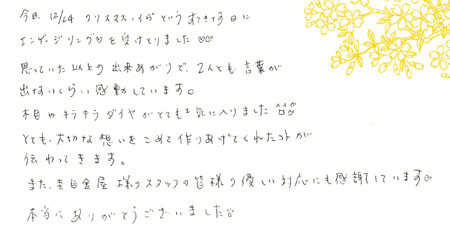 今日、12/24 クリスマス・イヴというすてきな日に
エンゲージリングを受けとりました♡♡
思っていた以上の出来あがりで、2人とも言葉が
出ないくらい感動しています。
木目やキラキラダイヤがとても気に入りました
とても大切な想いをこめて作りあげてくれたコトが
伝わってきます。
また、杢目金屋様のスタッフの皆様の優しい対応にも感謝しています♡
本当にありがとうございました